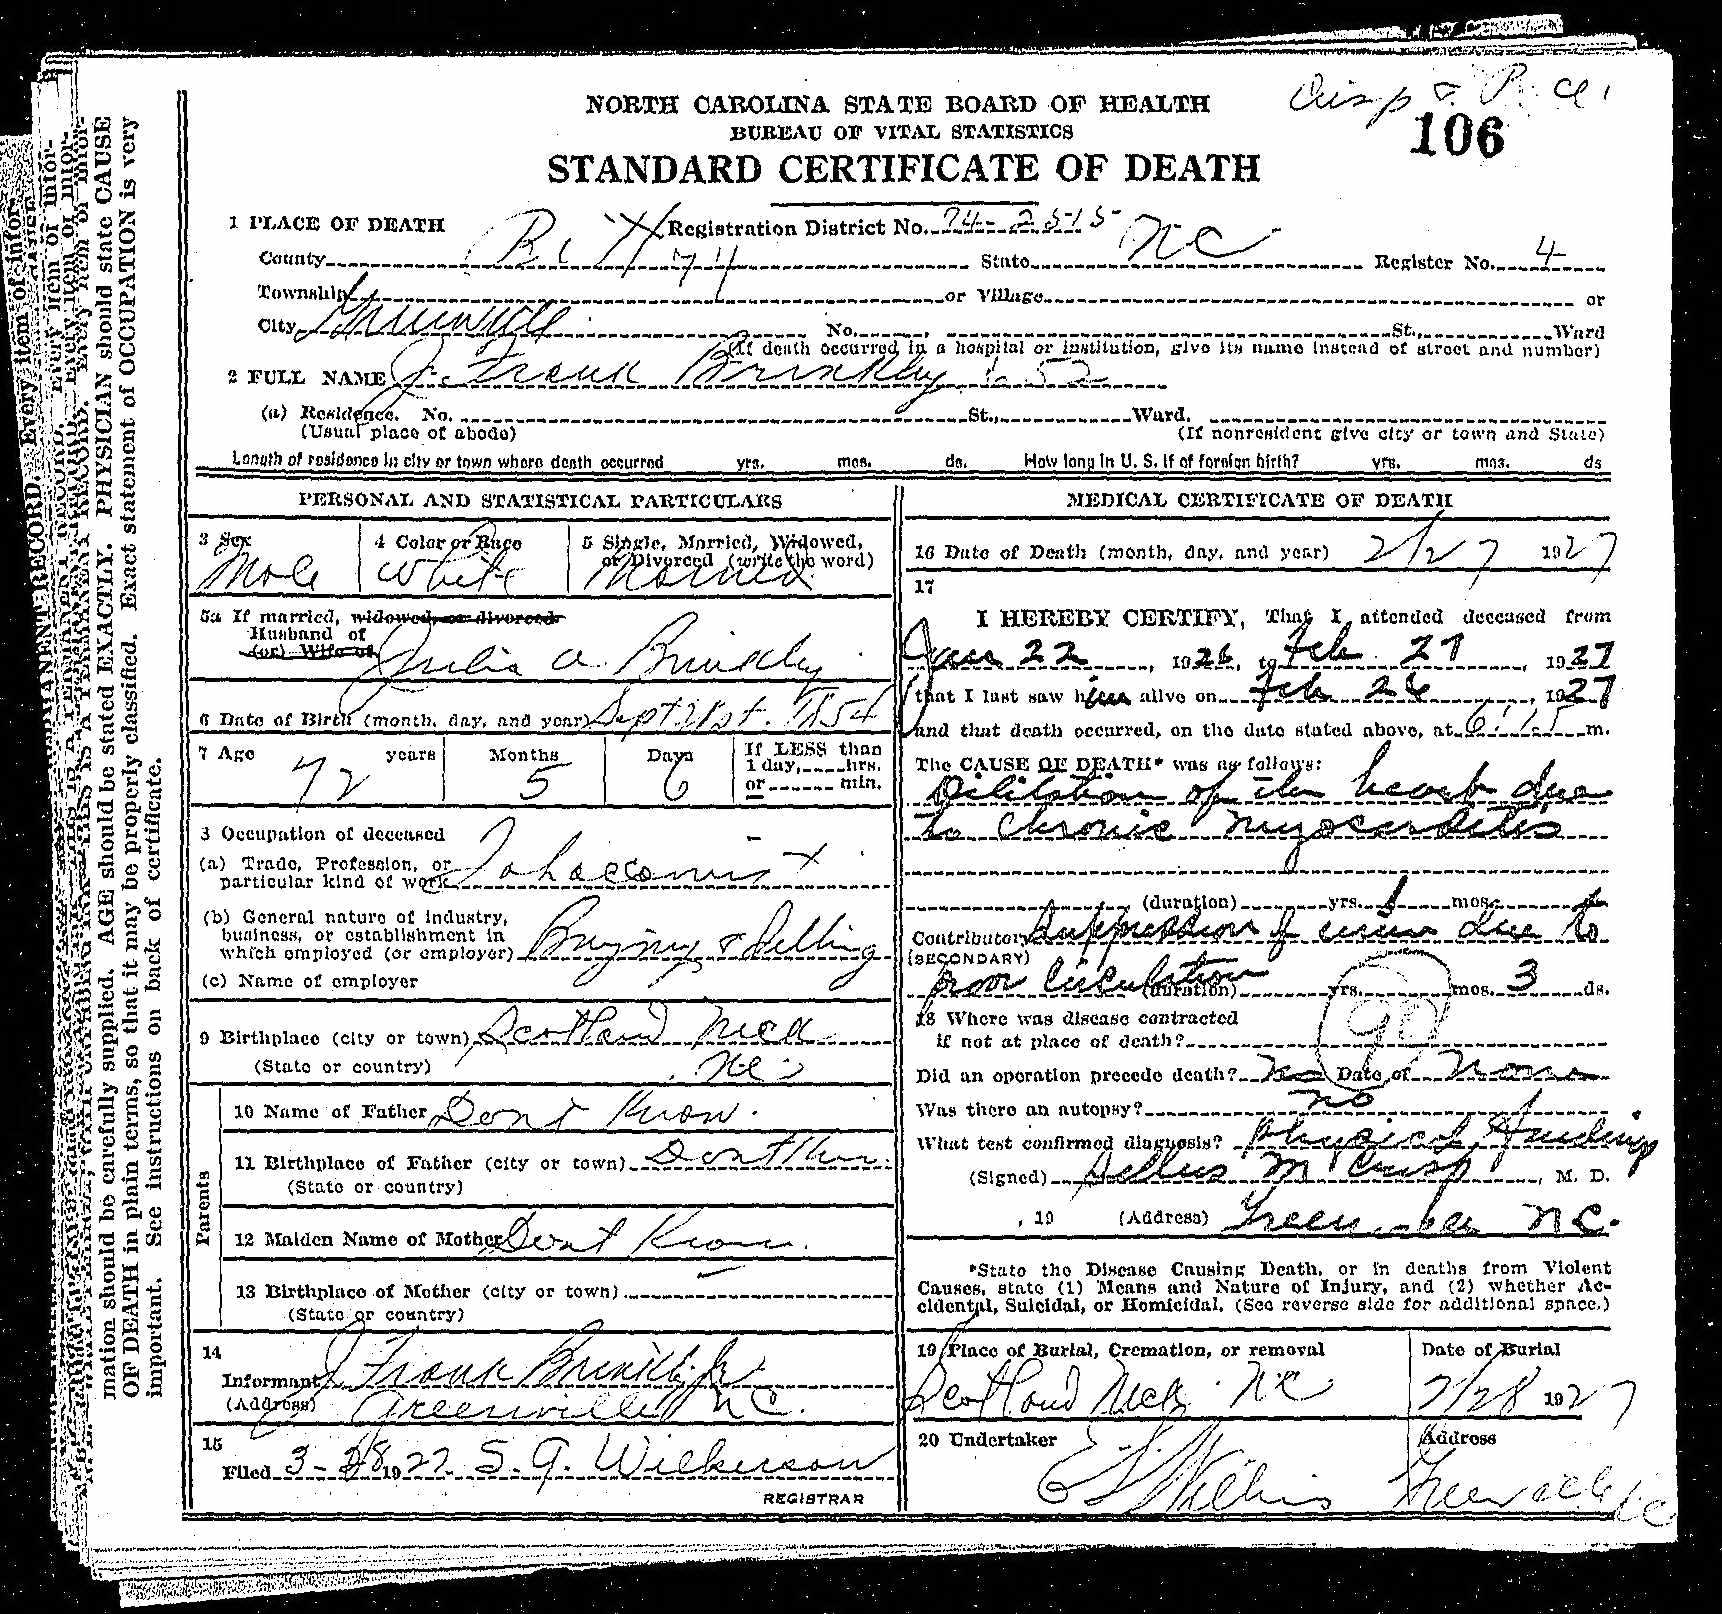 106
NORTH CAROLINA STATE BOARD OF HEALTH
BUREAU OF VITAL STATISTICS
STANDARD CERTIFICATE OF DEATH
1 PLACE OF DEATH Registration District No. 74-2515
County Pitt 74 State NC Register No. 4
Township or Village or
City Greenville No. , St., Ward
(If death occurred in a hospital or institution, give its name instead of street and number)
2 FULL NAME J. Frank Brinkley 152
(a) Residence. No. St., Ward.
(Usual place of abode) (If nonresident give city or town and State)
Length of residence in city or town where death occurred yrs. mos. ds. How long in U. S. if of foreign birth? yrs. mos. ds
PERSONAL AND STATISTICAL PARTICULARS
3 Sex Male
4 Color or Race White
5 Single, Married, Widowed,
or Divorced (write the word) Married
5a If married, widowed, or divorced
Husband of
(or) Wife of Julia A Brinkley
6 Date of Birth (month, day, and year) Sept 21st. 1854
7 Age 72 years 5 Months 6 Days If LESS than
1 day, hrs.
or min.
3 Occupation of deceased
(a) Trade, Profession, or
particular kind of work Tobacconist
(b) General nature of industry,
business, or establishment in
which employed (or employer) Buying & Selling
(c) Name of employer
9 Birthplace (city or town) Scotland Neck
(State or country) NC
Parents
10 Name of Father Dont Know.
11 Birthplace of Father (city or town) Dont Know
(State or country)
12 Maiden Name of Mother Dont Know.
13 Birthplace of Mother (city or town)
(State or country)
14
Informant J Frank Brinkley Jr
(Address) Greenville NC.
15
Filed 3-28 1927 S. G. Wilkerson
REGISTRAR
MEDICAL CERTIFICATE OF DEATH
16 Date of Death (month, day, and year) 2/27 1927
17
I HEREBY CERTIFY, That I attended deceased from
Jan 22, 1926, to Feb. 27, 1927
that I last saw him alive on Feb 26, 1927
and that death occurred, on the date stated above, at 6:15 m.
The CAUSE OF DEATH* was as follows:
Dilitation of the heart due
to Chronic myocarditis
(duration) yrs. mos.
Contributory Suppression of urine due to
(SECONDARY)
poor circulation
(duration) yrs. mos. 3 ds.
90
18 Where was disease contracted
if not at place of death?
Did an operation precede death? No Date of None
Was there an autopsy? no
What test confirmed diagnosis? Physical findings
(Signed) Sellers M Crisp, M. D.
, 19 (Address) Greenville NC.
*State the Disease Causing Death, or in deaths from Violent
Causes, state (1) Means and Nature of Injury, and (2) whether Ac-
cidental, Suicidal, or Homicidal. (See reverse side for additional space.)
19 Place of Burial, Cremation, or removal Date of Burial
Scotland Neck NC 2/28 1927
20 Undertaker Address
Wilkins Greenville NC
mation should be carefully supplied. AGE should be stated EXACTLY. PHYSICIAN should state CAUSE
OF DEATH in plain terms, so that it may be properly classified. Exact statement of OCCUPATION is very
important. See instructions on back of certificate.